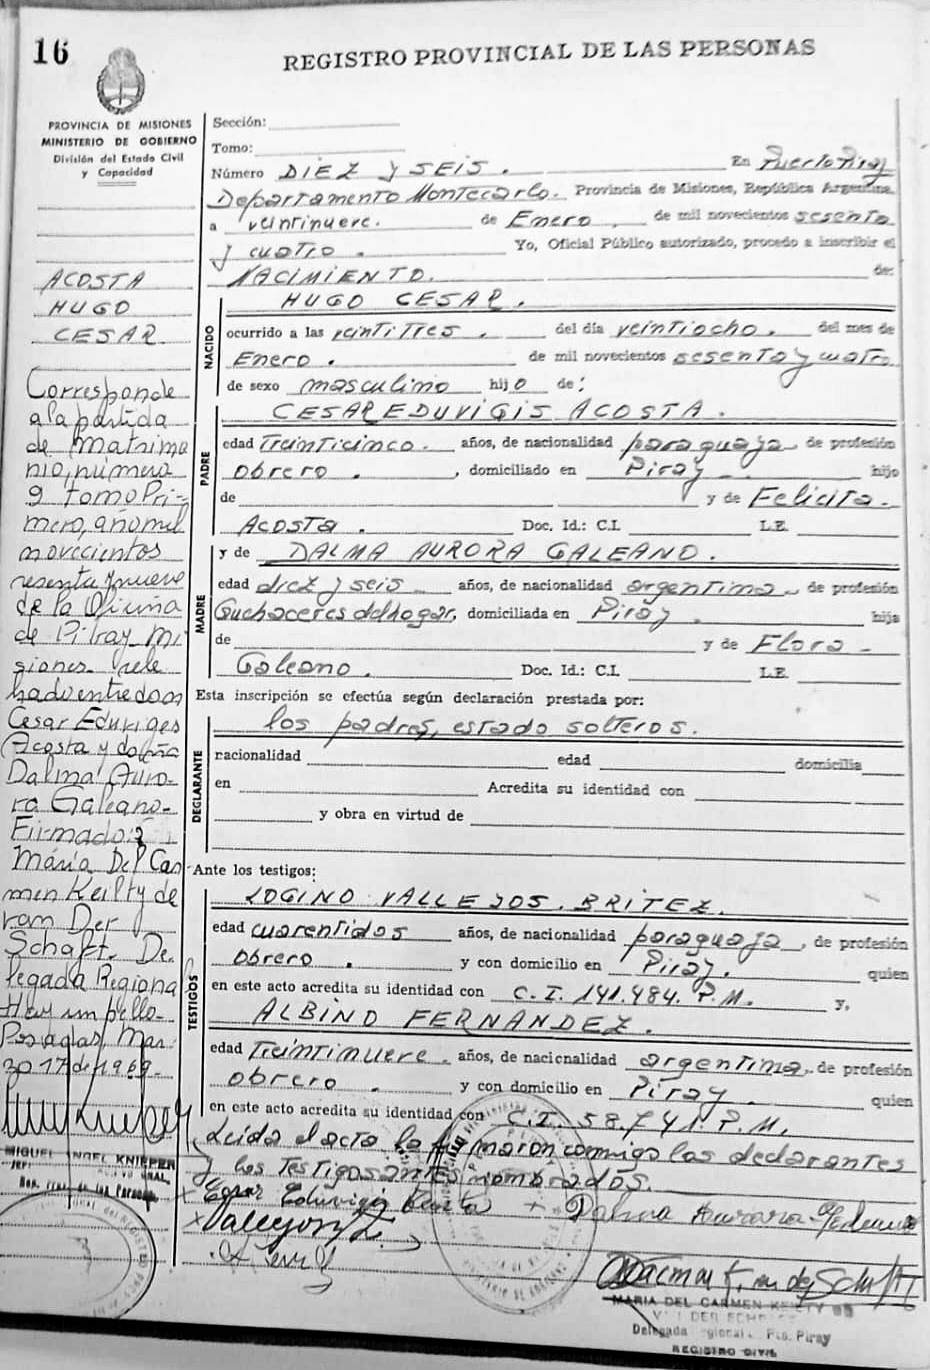 16
REGISTRO PROVINCIAL DE LAS PERSONAS
PROVINCIA DE MISIONES
MINISTERIO DE GOBIERNO
División del Estado Civil
y Capacidad
ACOSTA
HUGO
CESAR
Corresponde
a la partida
de Matrimo
nio, número
9 tomo Pri-
mero, año mil
novecientos
sesenta y nueve
de la Oficina
de Piray Mi
siones- cele
brado entre don
Cesar Eduviges
Acosta y doña
Dalma Auro-
ra Galeano-
Firmado:
Maria Del Car
men Keilty de
van Der
Schaft. De
legada Regional
Hay un sello-
Posadas, Mar
zo 17 de 1969-
MIGUEL ANGEL KNIEPER
Sección:
Tomo:
Número DIEZ y SEIS. En Puerto Piray
Departamento Montecarlo. Provincia de Misiones, República Argentina,
a veintinueve. de Enero. de mil novecientos sesenta
y cuatro. Yo, Oficial Público autorizado, procedo a inscribir el
NACIMIENTO. de:
NACIDO
HUGO CESAR.
ocurrido a las veintitres. del día veintiocho. del mes de
Enero. de mil novecientos sesenta y cuatro
de sexo masculino hijo de:
PADRE
CESAR EDUVIGIS ACOSTA.
edad Treinticinco. años, de nacionalidad paraguaya, de profesión
obrero., domiciliado en Piray. hijo
de y de Felicita.
Acosta. Doc. Id.: C.I. L.E.
MADRE
y de DALMA AURORA GALEANO.
edad diez y seis años, de nacionalidad argentina, de profesión
Quehaceres del hogar, domiciliada en Piray. hija
de y de Flora
Galeano. Doc. Id.: C.I. L.E.
Esta inscripción se efectúa según declaración prestada por:
DECLARANTE
los padres, estado solteros.
nacionalidad edad domicilia
en Acredita su identidad con
y obra en virtud de
Ante los testigos:
TESTIGOS
LOGINO VALLEJOS BRITEZ.
edad cuarentidos años, de nacionalidad paraguaya, de profesión
obrero. y con domicilio en Piray. quien
en este acto acredita su identidad con C.I. 141.484. P.M. y,
ALBINO FERNANDEZ.
edad Treintinueve. años, de nacionalidad argentina, de profesión
obrero. y con domicilio en Piray. quien
en este acto acredita su identidad con C.I. 58.741. P.M.
Leida el acta la firmaron conmigo los declarantes
y los Testigos antes nombrados.
MARIA DEL CARMEN KEILTY DE
VAN DER SCHAFT
Delegada Regional Pto. Piray
REGISTRO CIVIL